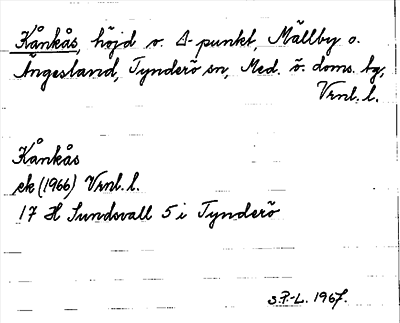 Kånkås, höjd o. Δ-punkt, Mällby o.
Ängesland, Tynderö sn, Med. ö. doms. tg,
Vrnl. l.
Kånkås
ek (1966) Vrnl. l.
17 H Sundsvall 5 i Tynderö
S.P.-L. 1967.